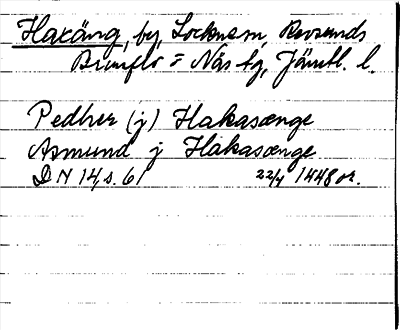 Haxäng, by, Locknesn, Revsunds
Brunflo = Näs tg, Jämtl. l.
Pedher (j) Hakasænge
Asmund j Hakasænge
DN 14, s. 61 22/4 1448 or.